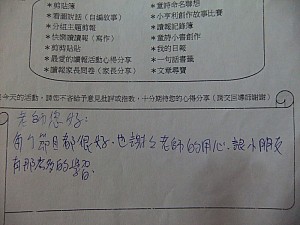 ＊剪貼簿
＊看圖說話（自編故事）
＊分組主題剪報
＊快樂讀讀報（寫作）
＊剪剪貼貼
＊最愛的讀報活動心得分享
＊讀報家長回卷（家長分享）
＊童詩命名聯想
＊小亨利創作故事比賽
＊讀報記錄簿
＊童詩創作
＊我的日報
＊一句話書籤
＊文章尋寶
今天的活動，請您不吝給予意見批評或指教，十分期待您的心得分享（請交回導師謝謝）
老師您好：
每个節目都很好.也謝谢老師的用心.讓小朋友
有那麼多的學習.